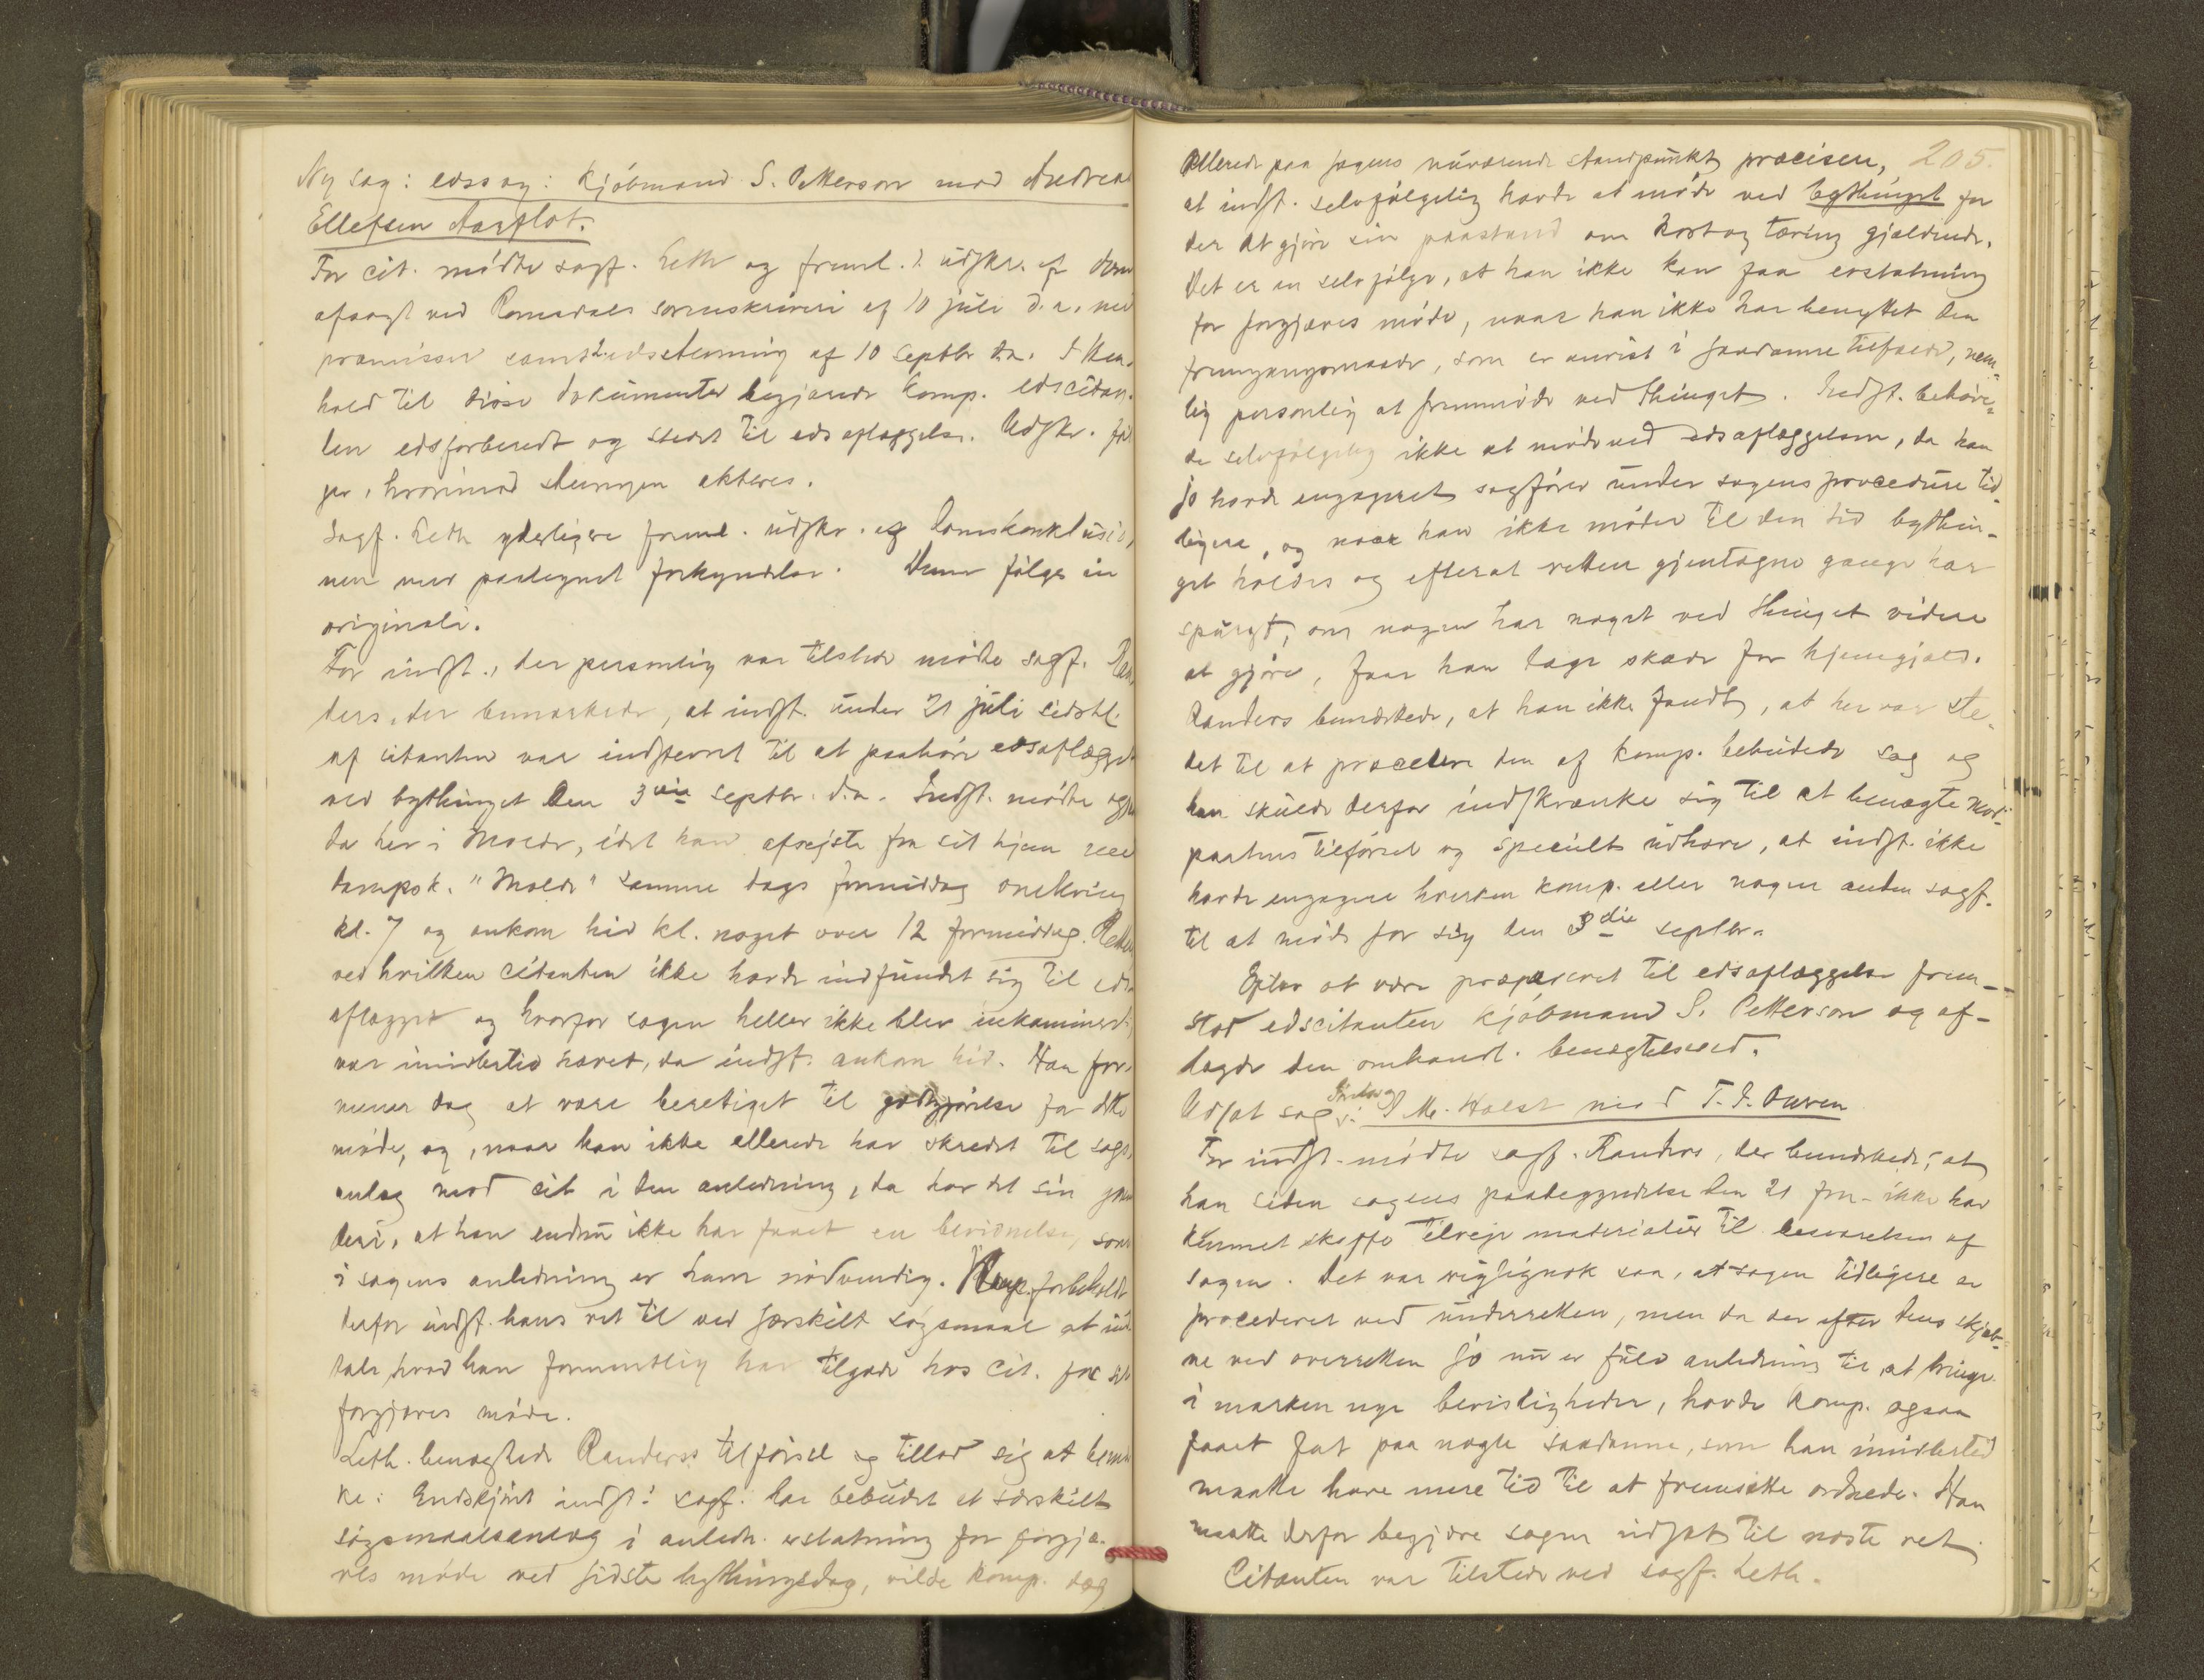 Ny sag: edssag: Kjöbmand S. Petterson mod Andreas
Ellefsen Aarflot.
For cit. mødte sagf. Leth og freml. 1. udskr. af dom
afsagt ved Romsdals sorenskriveri af 10 juli d.a. med
præmisser samt edsstevning af 10 septbr d.a. I Hen-
hold til disse dokumenter begjærede komp. edscitan-
ten edsforberedt og stedet til edsaflæggelse. Udskr. föl
ger, hvorimod stevningen akteres.
Sagf. Leth yderligere freml. udskr. af domskonklusio-
nen med paategnet forkyndelse. Denne følger in
originali.
For indst., der personlig var tilstede mødte sagf. Ran-
ders, der bemærkede, at indst. under 21 juli sidstl.
af citanten var indstevnet til at paahöre edsaflægget
ved bythinget den 3die septbr. d.a. Indst. mødte ogsaa
da her i Molde, idet han afrejste fra sit hjem med
dampsk. "Molde" samme dags formiddag omkring
kl. 7 og ankom hid kl. noget over 12 formiddag. Retten
ved hvilken citanten ikke havde indfundet sig til eds-
aflægget og hvorfor sagen heller ikke blev inkamineret,
var imidlertid hævet, da indst. ankom hid. Han for-
mener dog at være beretiget til godtgjörelse for dette
møde, og, naar han ikke allerede har skredet til sags-
anlæg mod cit i den anledning, da har det sin grund
deri, at han endnu ikke har faaet en bevidnelse, som
i sagens anledning er ham nödvendig. Komp. forbeholdt
derfor indst. hans ret til ved særskilt søgsmaal at ind
tale hvad han formentlig har tilgode hos cit. for sit
forgjæves møde.
Leth. benægtede Randers's tilførsel og tillod sig at bemær
ke: Endskjönt indst: sagf. har bebudet et særskilt
søgsmaalsanlæg i anledn. erstatning for forgjæ-
ves møde ved sidste bythingsdag, vilde komp. dog
allerede paa sagens nuværende standpunkt præcisere, 205.
at indst. selvfølgelig havde at møde ved bythinget for
der at gjöre sin paastand om kost og tæring gjældende.
Det er en selvfølge, at han ikke kan faa erstatning
for forgjæves møde, naar han ikke har benyttet den
fremgangsmaade, som er anvist i saadanne tilfælde, nem-
lig personlig at fremmøde ved thinget. Indst. behöve-
de selvfølgelig ikke at møde ved edsaflæggelsen, da han
jo havde engageret sagförer under sagens procedure tid-
ligere, og naar han ikke møder til den tid bythin-
get holdes og efterat retten gjentagne gange har
spurgt, om nogen har noget ved thinget videre
at gjöre, faar han tage skade for hjemgjæld.
Randers bemærkede, at han ikke fandt, at her var ste-
det til at procedere den af komp. bebudede sag og
han skulde derfor indskrænke sig til at benægte mod-
partens tilførsel og specielt udhæve, at indst. ikke
havde engageret hverken komp. eller nogen anden sagf.
til at møde for sig den 3die septbr.
Efter at være præpareret til edsaflæggelse frem-
stod edscitanten kjöbmand S. Petterson og af-
lagde den omhandl. benægtelsesed.
Udsat sag: P M. Holst mod T. I. Owren
For indst. mødte sagf. Randers, der bemærkede, at
han siden sagens paabegyndelse den 21 f.m. ikke har
kunnet skaffe tilveje materialier til besvarelsen af
sagen. Det var rigtignok saa, at sagen tidligere er
procederet ved underretten, men da der efter dens skjæb-
ne ved overretten jo nu er fuld anledning til at bringe
i marken nye bevisligheder, havde komp. ogsaa
faaet fat paa nogle saadanne, som han imidlertid
maatte have mere tid til at fremsætte ordnede. Han
maatte derfor begjære sagen udsat til næste ret
Citanten var tilstede ved sagf. Leth.